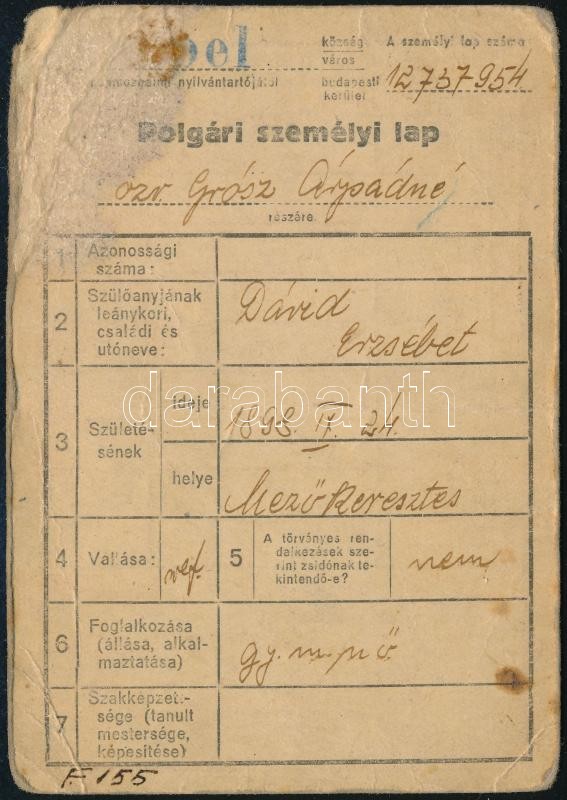 község
város
budapesti
kerület
A személyi lap száma
12,737954
nyilvántartójától
Polgári személyi lap
özv. Grósz Árpádné
részére.
1 Azonossági
száma:
2 Szülőanyjának
leánykori,
családi és
utóneve:
Dávid
Erzsébet
3 Születé-
sének
ideje
1898. II. 24.
helye
Mezőkeresztes
darabanth
4 Vallása:
ref.
5 A törvényes ren-
delkezések sze-
rint zsidónak te-
kintendő-e?
nem
6 Foglalkozása
(állása, alkal-
maztatása)
gy. m. nő.
7 Szakképzett-
sége (tanult
mestersége,
képesítése)
F. 155